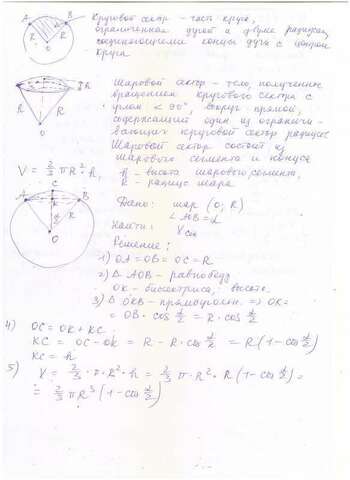 Круговой сектор - часть круга,
ограниченная дугой и двумя радиусами,
соединяющими концы дуги с центром
круга
A B
R R
O
Шаровой сектор - тело, полученное
вращением кругового сектора с
углом < 90°, вокруг прямой,
содержащей один из ограничи-
вающих круговой сектор радиусов
Шаровой сектор состоит из
шарового сегмента и конуса
h
R R
O
V = 2/3 πR²·h,
h - высота шарового сегмента,
R - радиус шара
C
A K B
O
Дано: шар (O; R)
∠AOB = α
Найти: V
Решение:
1) OA = OB = OC = R
2) Δ AOB - равнобедр
OK - биссектриса, высота.
3) Δ OKB - прямоугольн. => OK =
= OB · cos α/2 = R · cos α/2
4) OC = OK + KC
KC = OC - OK = R - R·cos α/2 = R(1 - cos α/2)
KC = h
5) V = 2/3 · π · R² · h = 2/3 π · R² · R(1 - cos α/2) =
= 2/3 πR³ (1 - cos α/2)